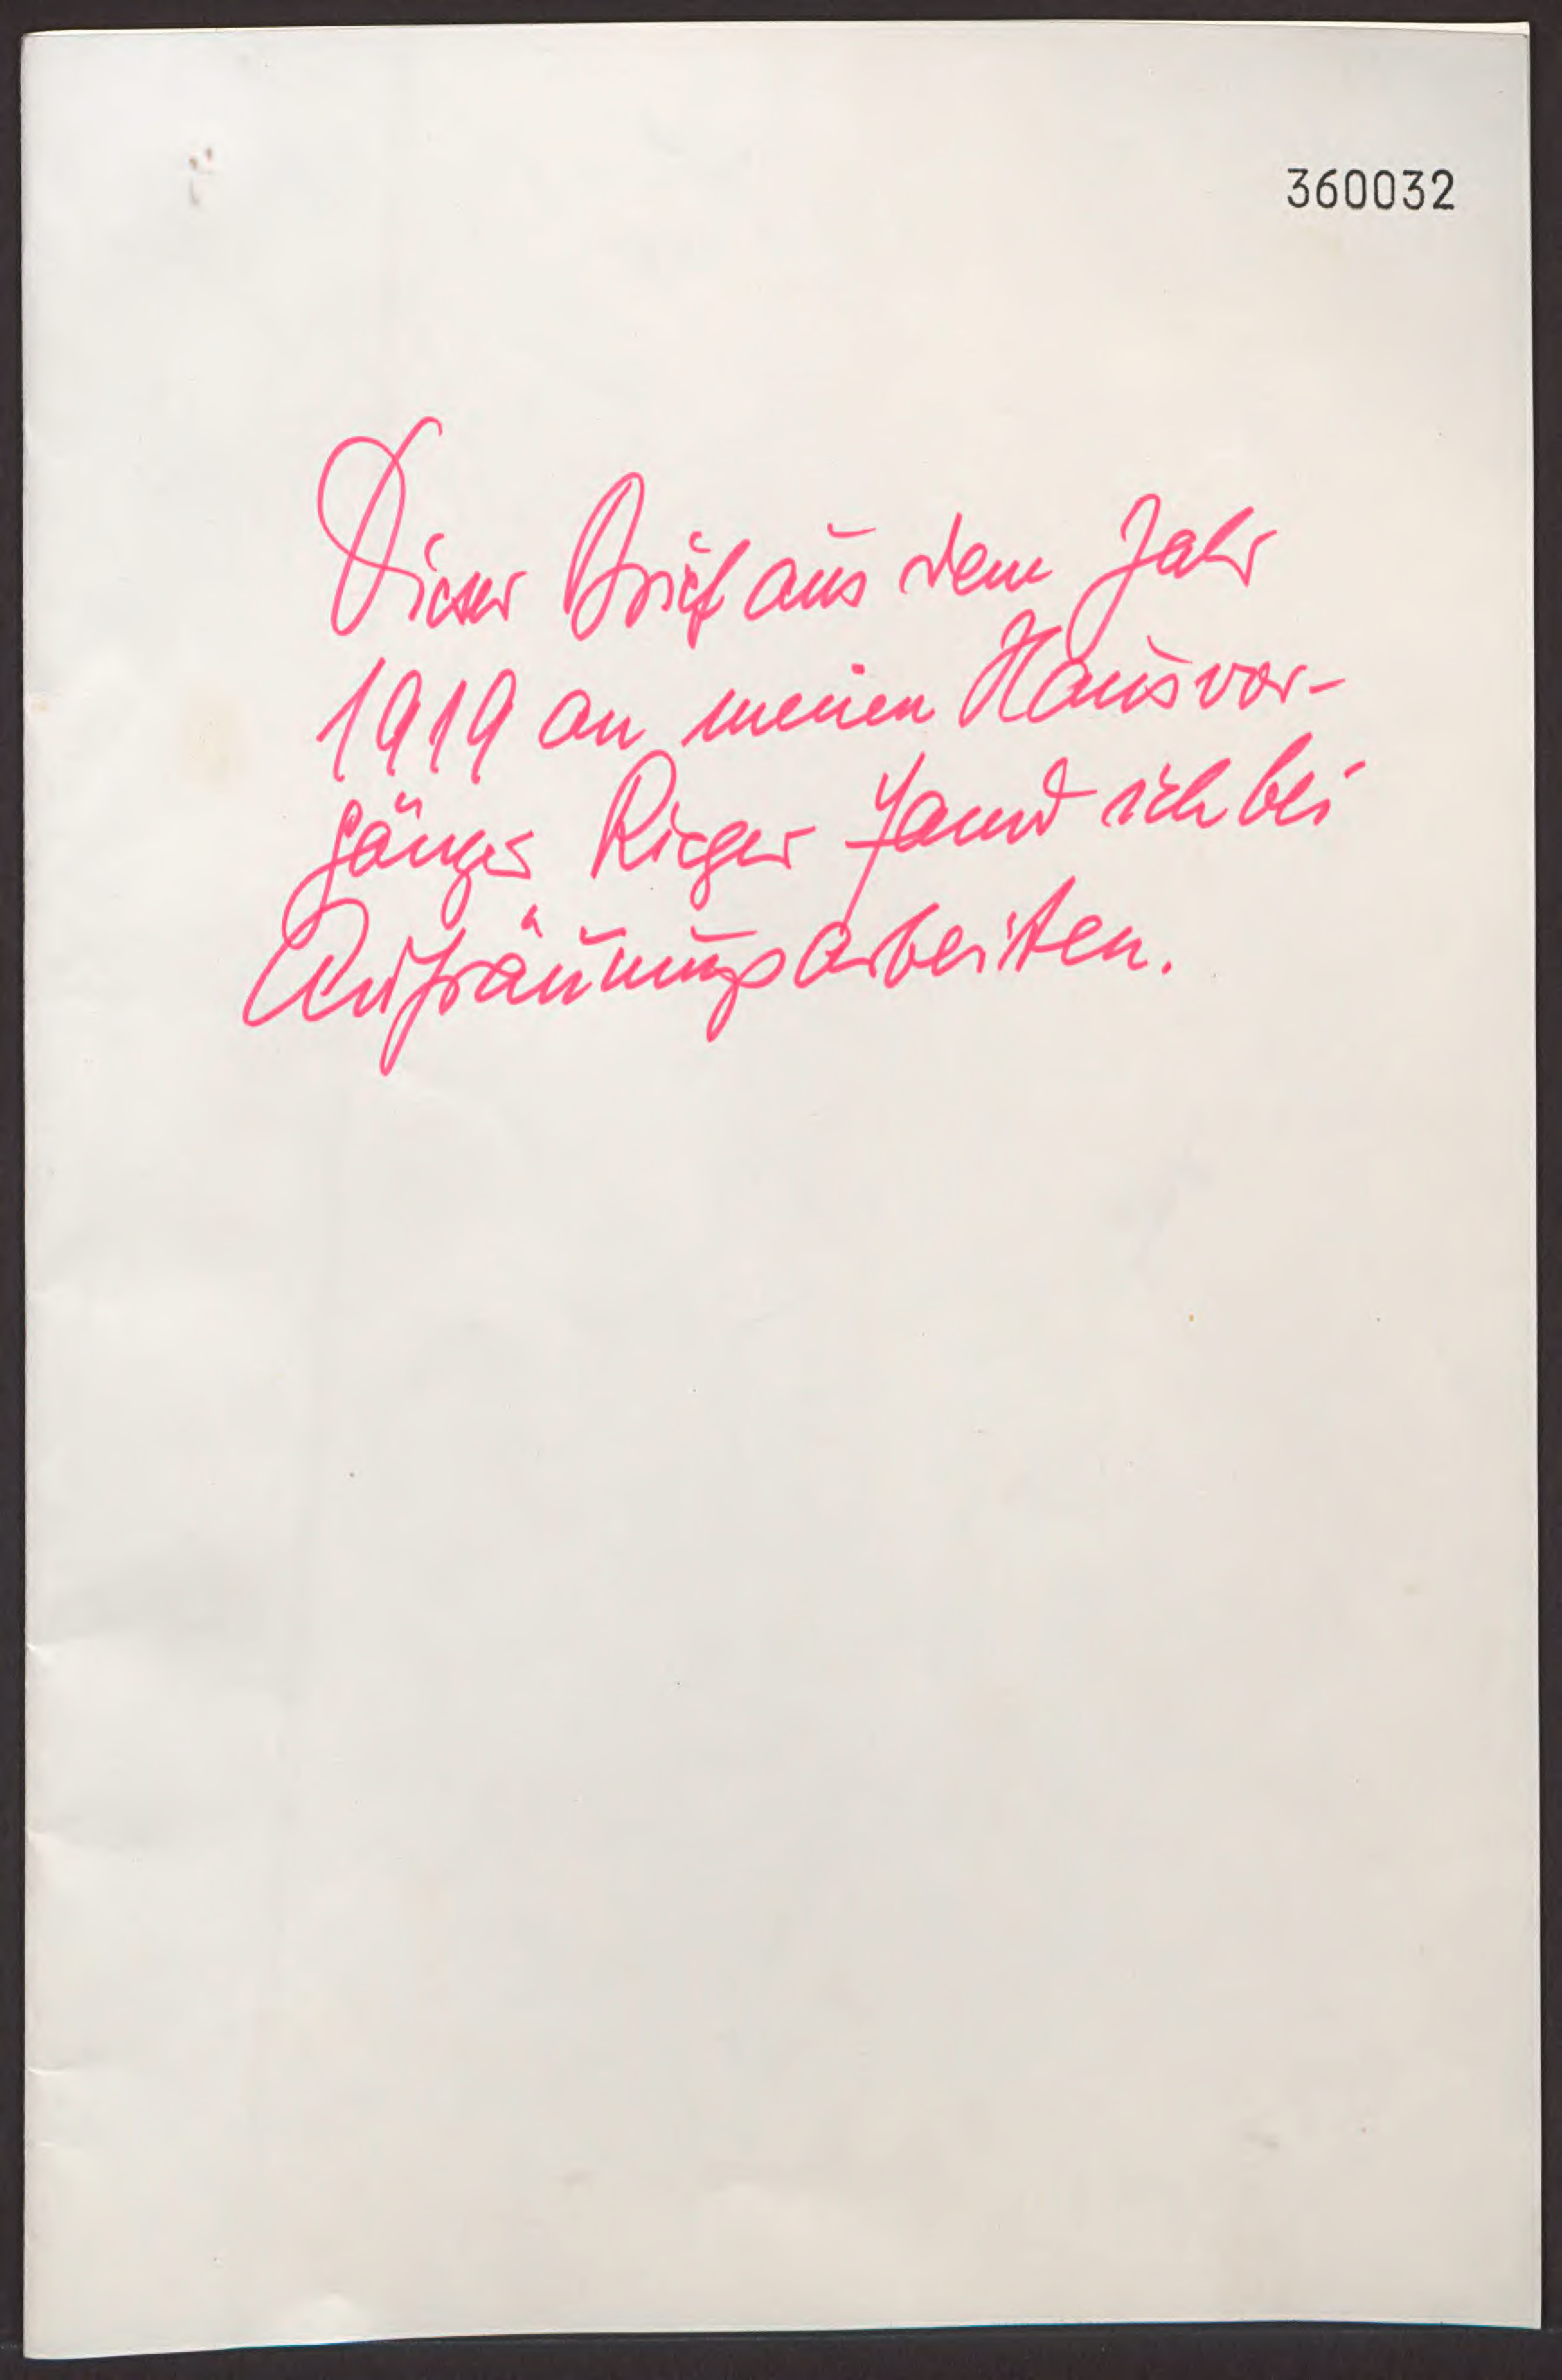 360032
Dieser Brief aus dem Jahr
1919 an meinen Hausvor-
gänger Rieger fand ich bei
Aufräumungsarbeiten.